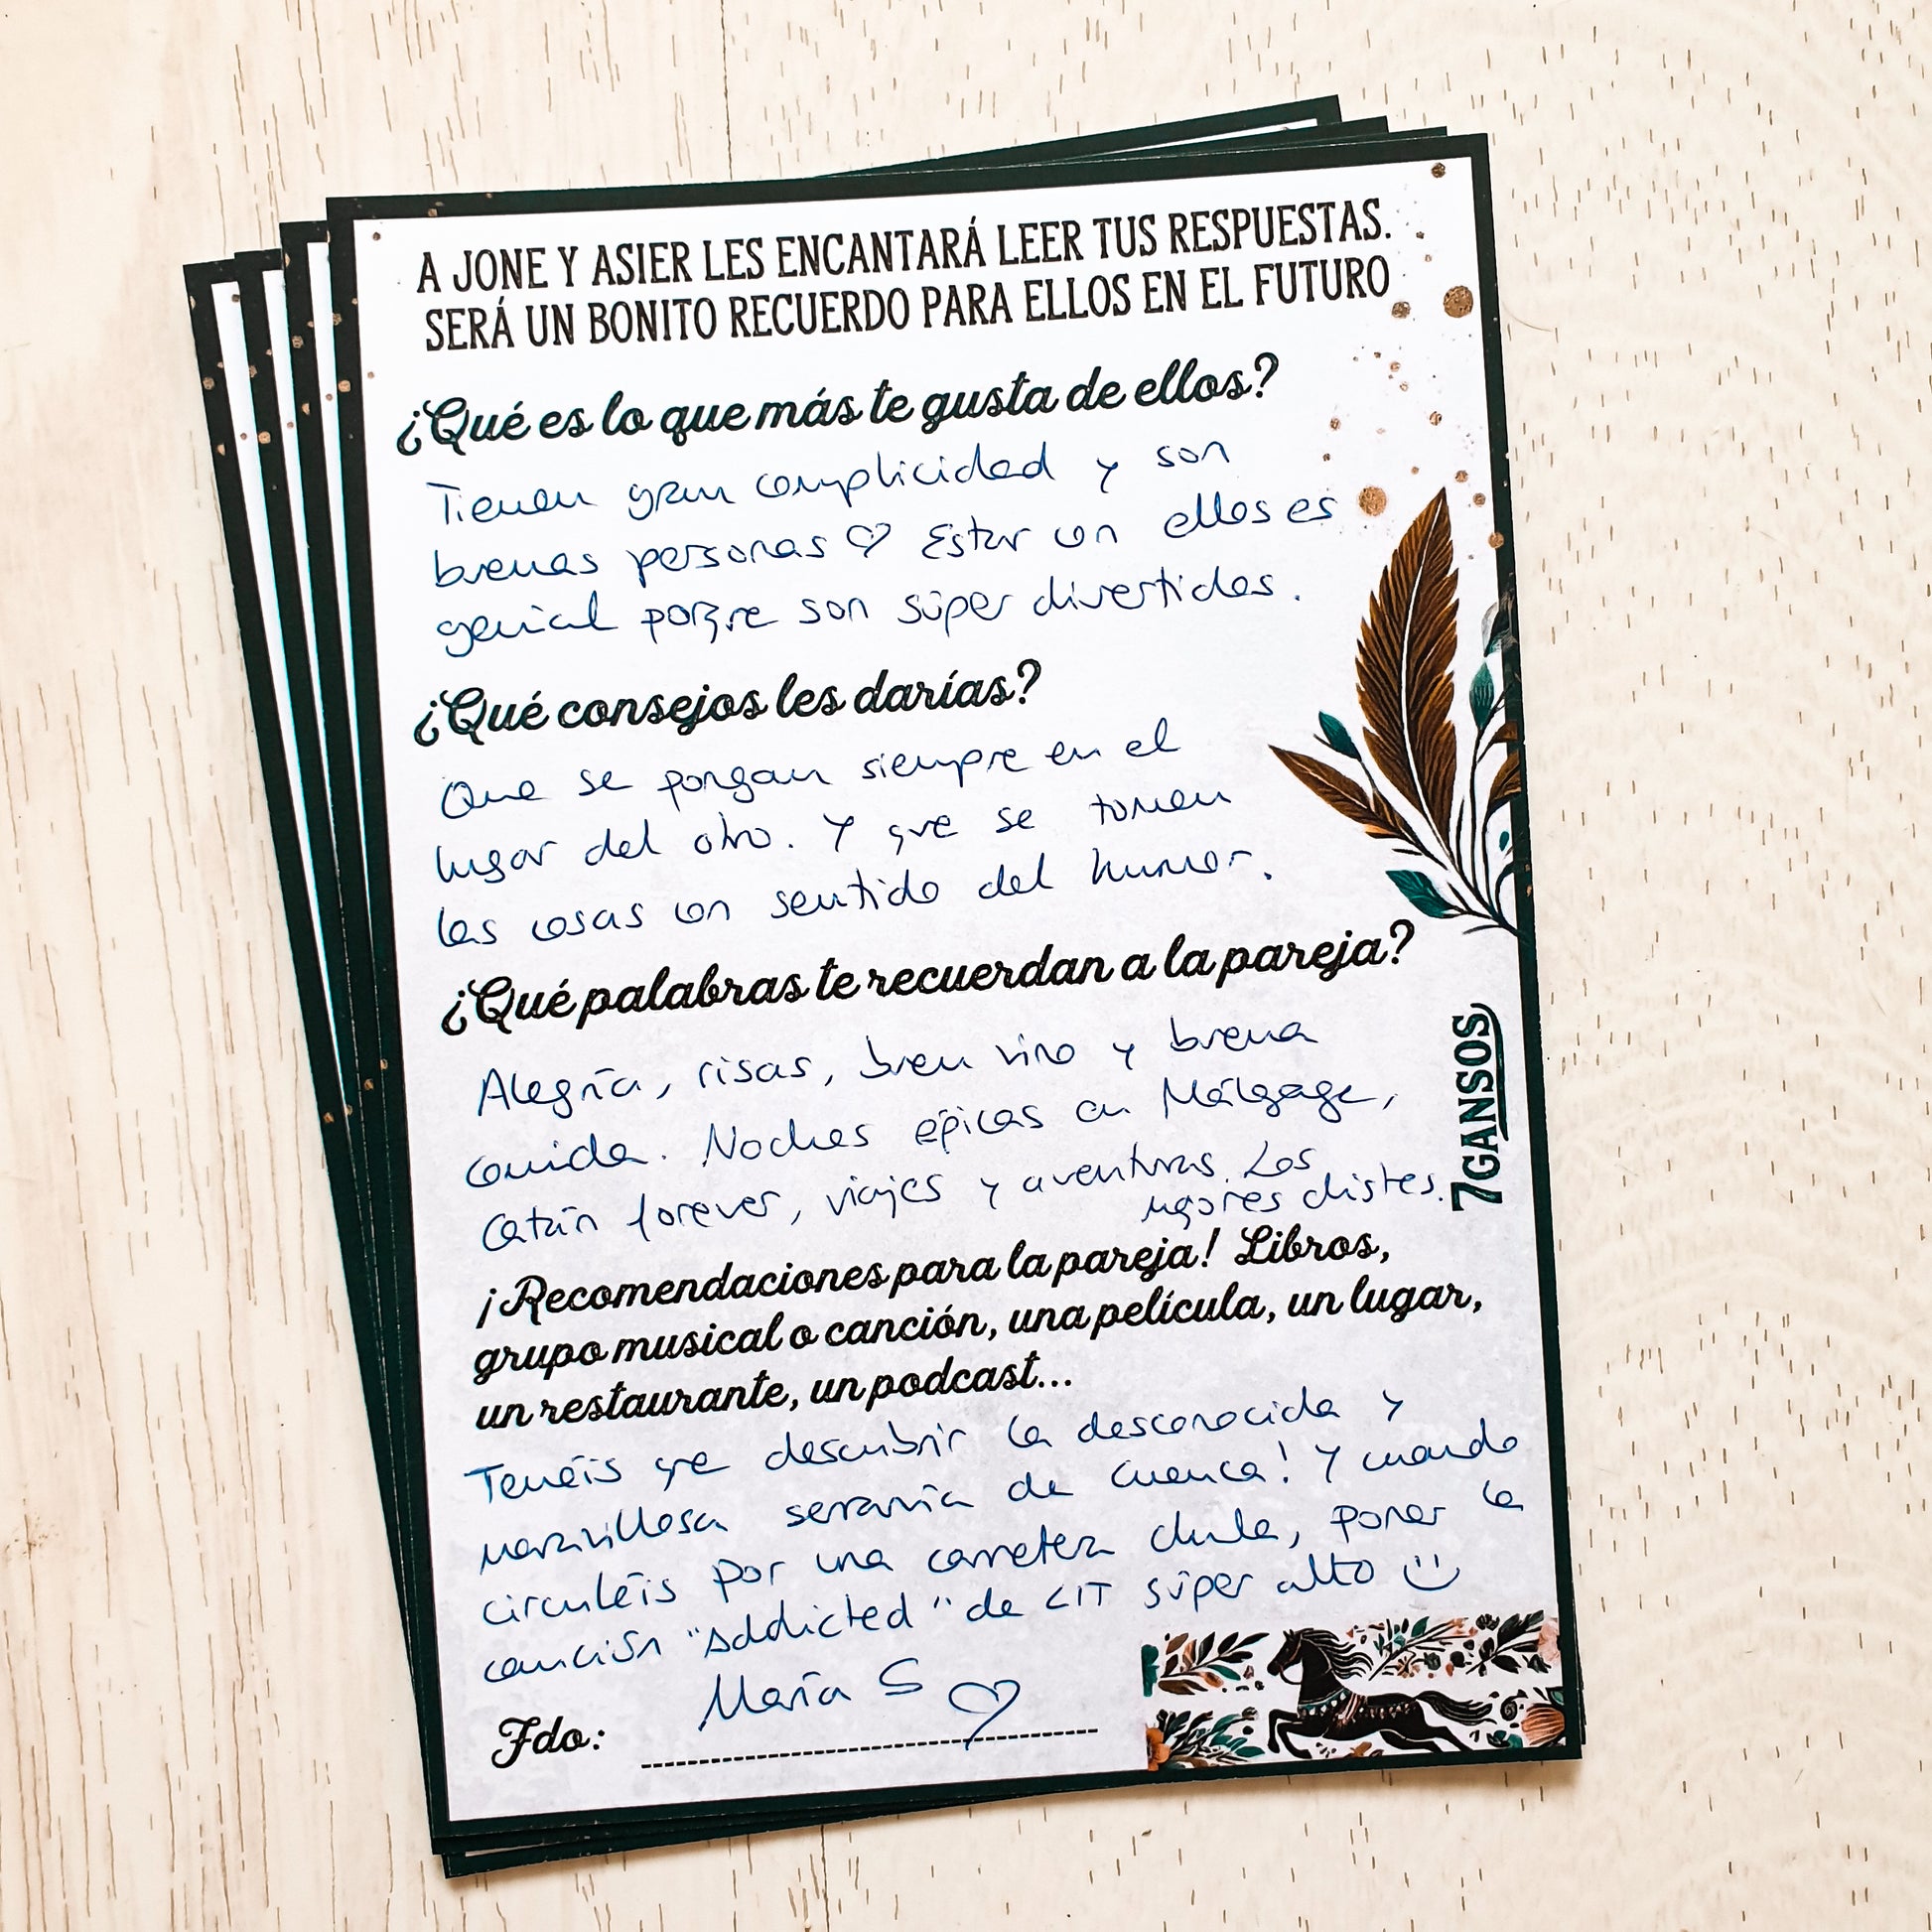 A JONE Y ASIER LES ENCANTARÁ LEER TUS RESPUESTAS.
SERÁ UN BONITO RECUERDO PARA ELLOS EN EL FUTURO
¿Qué es lo que más te gusta de ellos?
Tienen gran complicidad y son
buenas personas ♡ Estar con ellos es
genial porque son súper divertidos.
¿Qué consejos les darías?
Que se pongan siempre en el
lugar del otro. Y que se tomen
las cosas con sentido del humor.
¿Qué palabras te recuerdan a la pareja?
Alegría, risas, buen vino y buena
comida. Noches épicas en
Catán forever, viajes y aventuras. Los
mejores chistes.
7GANSOS
¡Recomendaciones para la pareja! Libros,
grupo musical o canción, una película, un lugar,
un restaurante, un podcast...
Tenéis que descubrir la desconocida y
maravillosa serranía de Cuenca! Y cuando
circuléis por una carretera chula, poner la
canción "Addicted" de súper alto
María S ♡
Fdo: